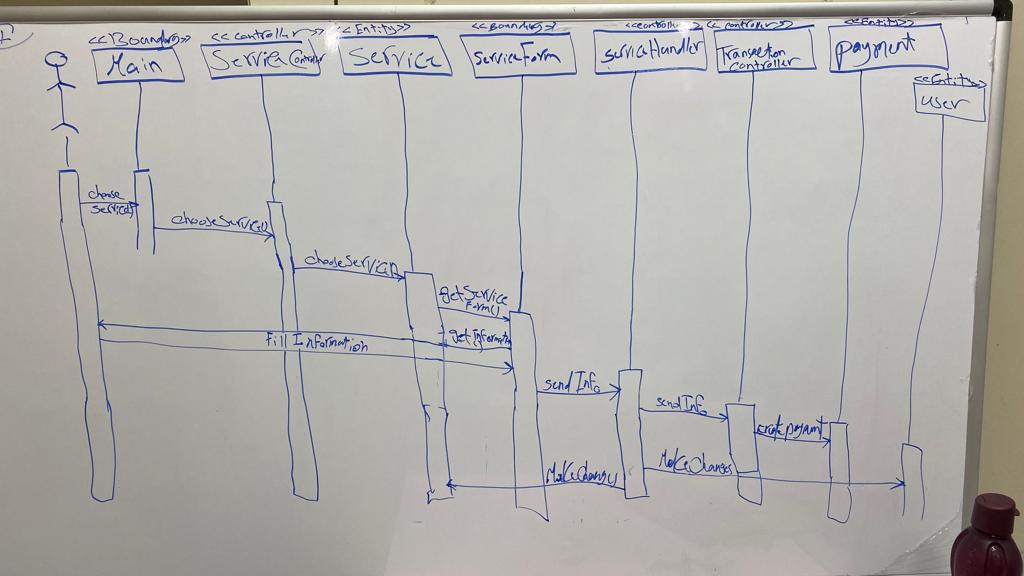 <<Boundary>>
Main
<<controller>>
Service Controller
<<Entity>>
Service
<<Boundary>>
ServiceForm
<<controller>>
serviceHandler
<<controller>>
Transaction
controller
<<Entity>>
payment
<<Entity>>
user
choose
service()
chooseService()
chooseService()
getService
Form()
getInformation
()
Fill Information
send Info
send Info
create payment
Make Changes
Make Changes